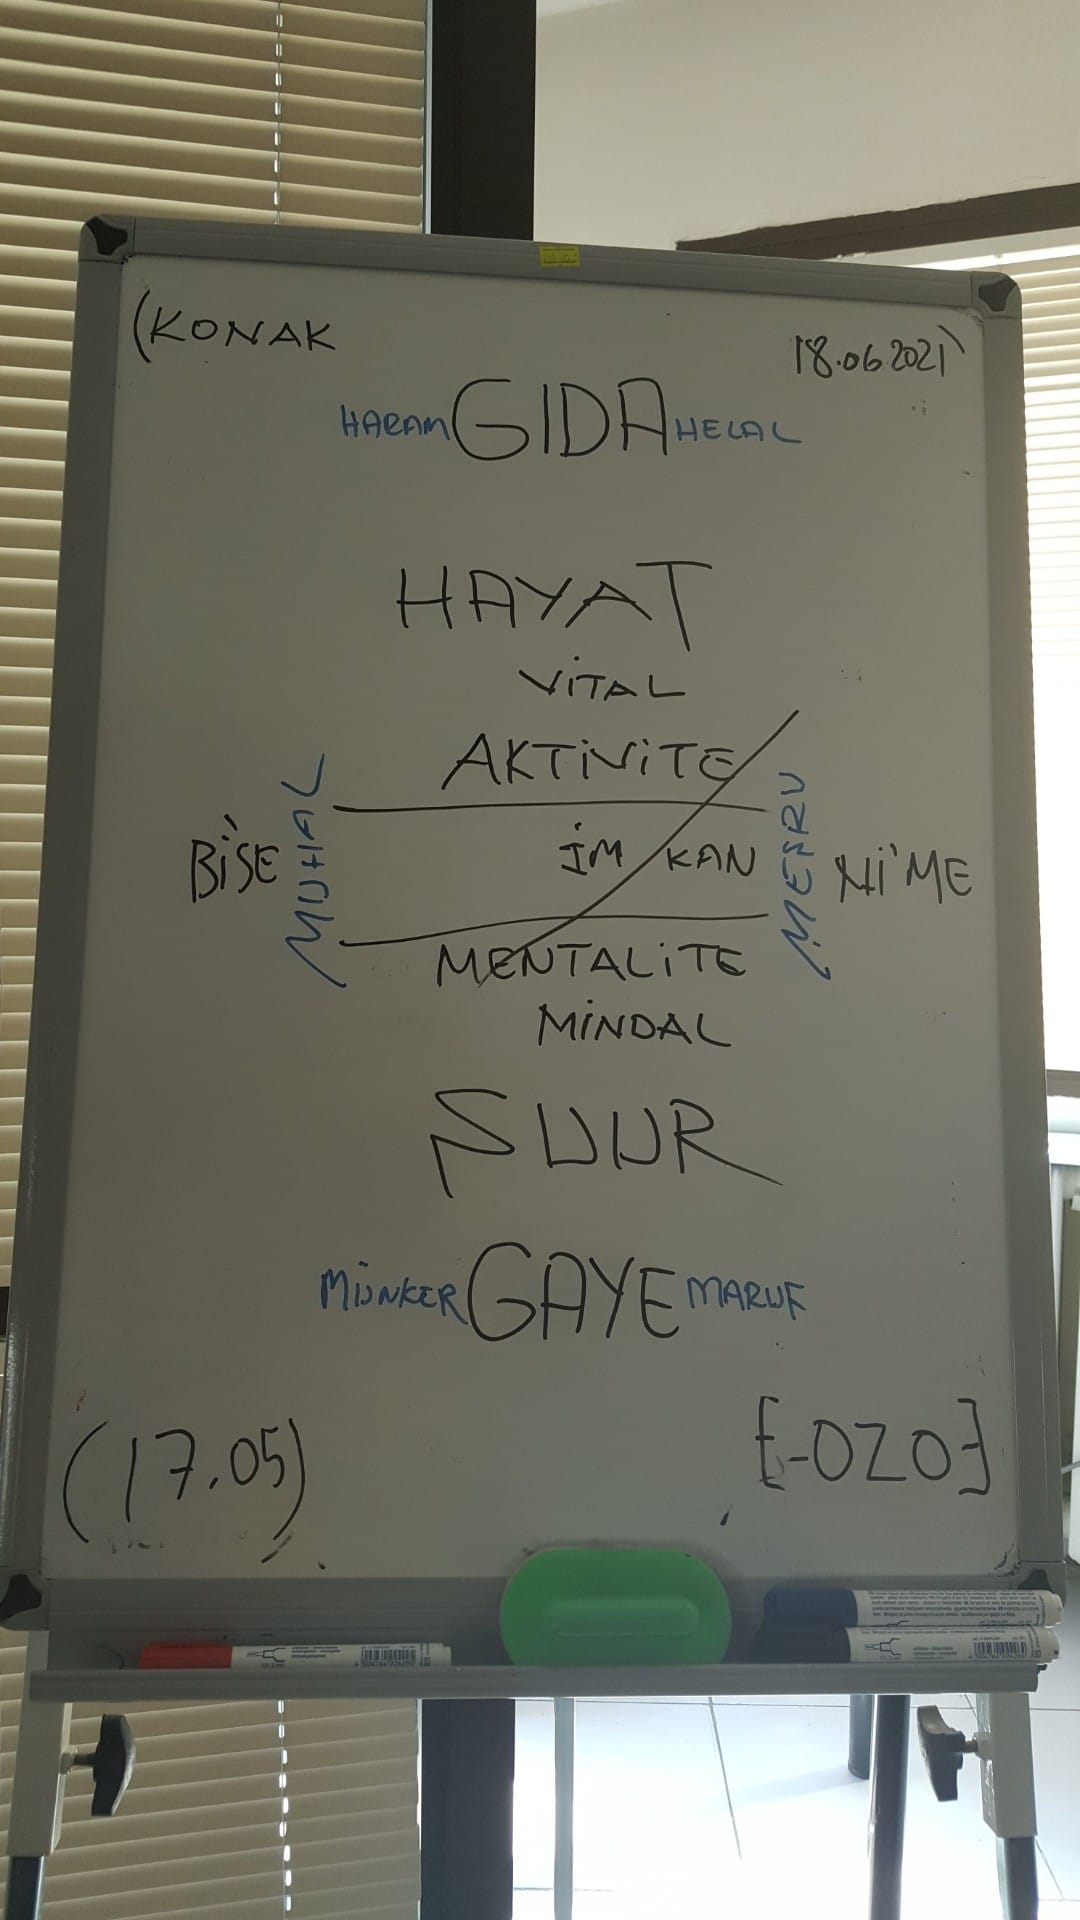 (KONAK 18.06.2021)
HARAM GIDA HELAL
HAYAT
VİTAL
AKTİVİTE
BİSE MUHAL İM KAN MEŞRU Nİ'ME
MENTALİTE
MİNDAL
ŞUUR
MÜNKER GAYE MARUF
(17.05) [-OZO-]